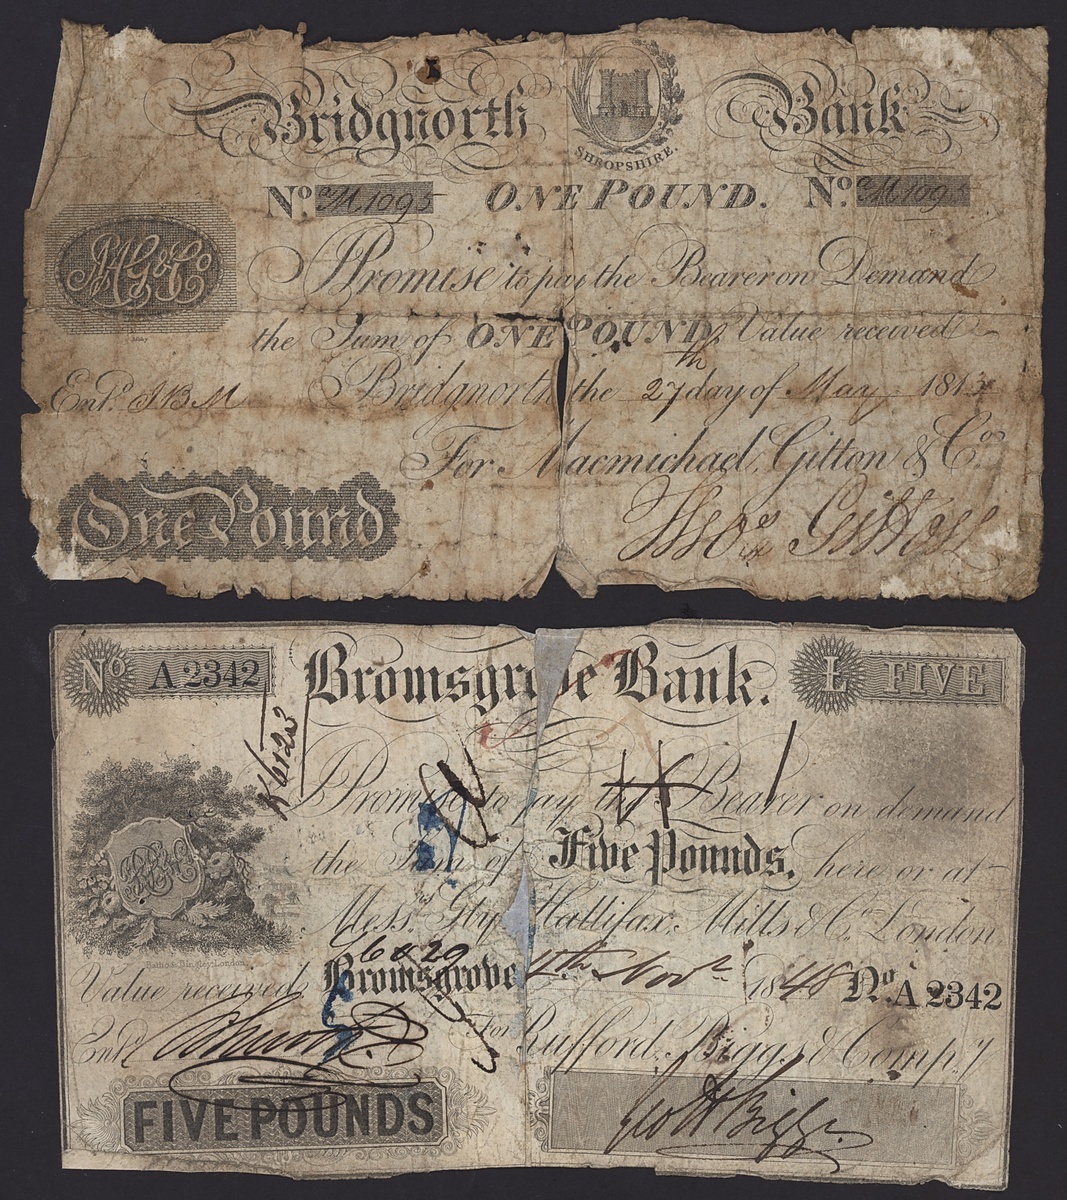 Bridgnorth Bank
SHROPSHIRE.
No. M1095 ONE POUND. No. M109
I Promise to pay the Bearer on Demand
the Sum of ONE POUND Value received
Bridgnorth the 27th day of May 181
Entd. J B M
For Macmichael, Gitton & Co.
One Pound
Thos Gitton
No A 2342 Bromsgrove Bank. £ FIVE
I Promise to pay the Bearer on demand
the Sum of Five Pounds, here or at
Messrs. Glyn Hallifax, Mills & Co. London
Value received Bromsgrove Novr 1848 No. A 2342
Entd.
For Rufford, Biggs & Compy.
FIVE POUNDS
Geo H Biggs